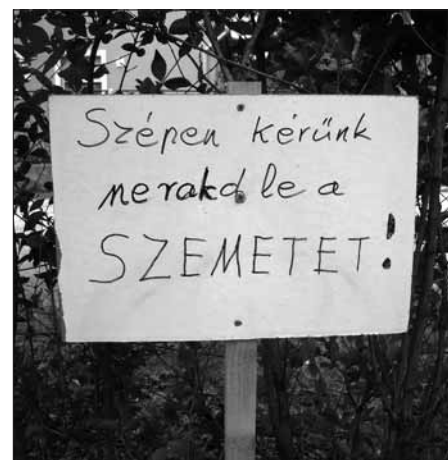 Szépen kérünk
ne rakd le a
SZEMETET!